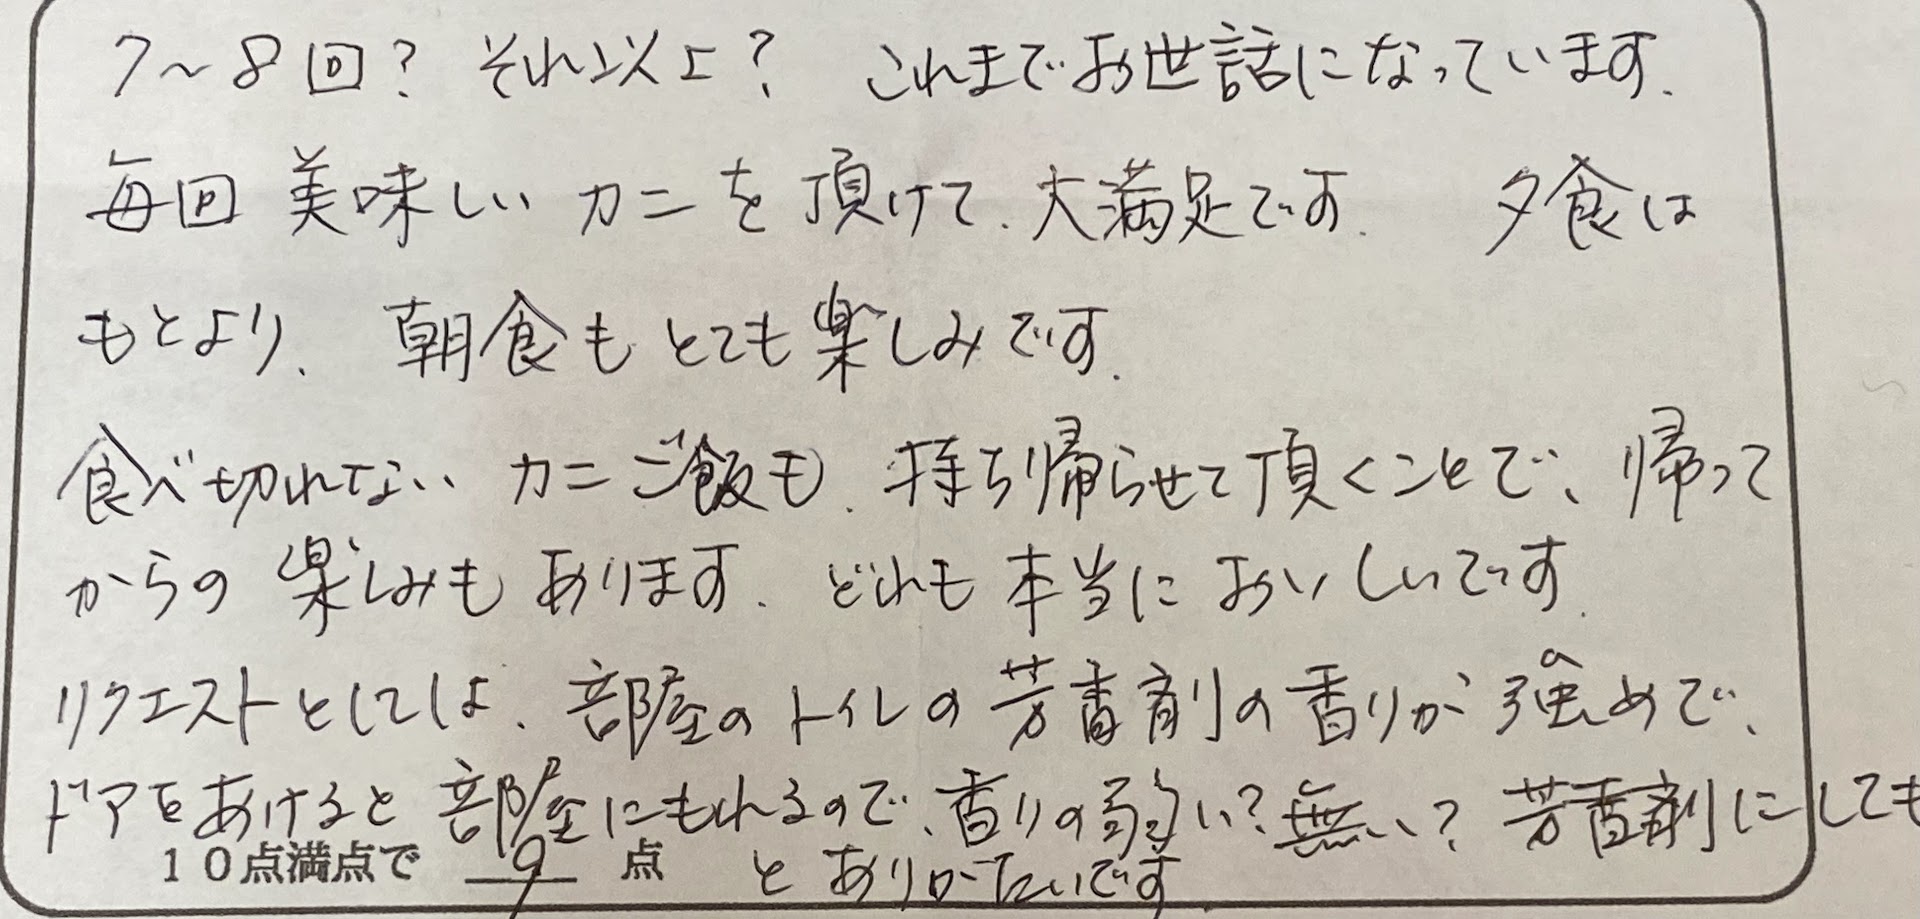 7〜8回？ それ以上？ これまでお世話になっています.
毎回 美味しい カニ を 頂けて、大満足です. 夕食は
もとより、朝食も とても 楽しみです.
食べ切れない カニ ご飯も、持ち帰らせて頂くことで、帰って
からの 楽しみも あります. どれも 本当に おいしいです.
リクエストとしては、部屋の トイレの 芳香剤の 香りが 強めで、
ドアを あけると 部屋にもれるので、香りの 弱い？ 無い？ 芳香剤にしても
10点満点で 9 点 と ありがたいです